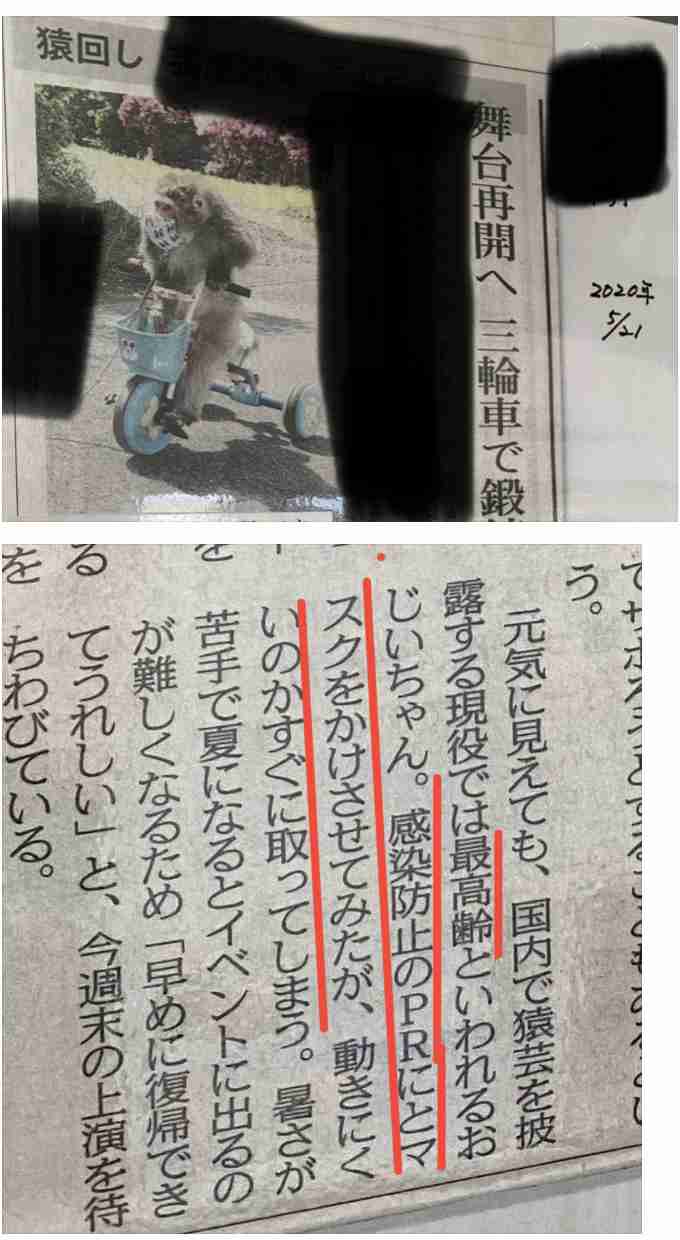 猿回し
舞台再開へ 三輪車で鍛
2020年
5/21
う。
元気に見えても、国内で猿芸を披
露する現役では最高齢といわれるお
じいちゃん。感染防止のPRにとマ
スクをかけさせてみたが、動きにく
いのかすぐに取ってしまう。暑さが
苦手で夏になるとイベントに出るの
が難しくなるため「早めに復帰でき
てうれしい」と、今週末の上演を待
ちわびている。
る
を